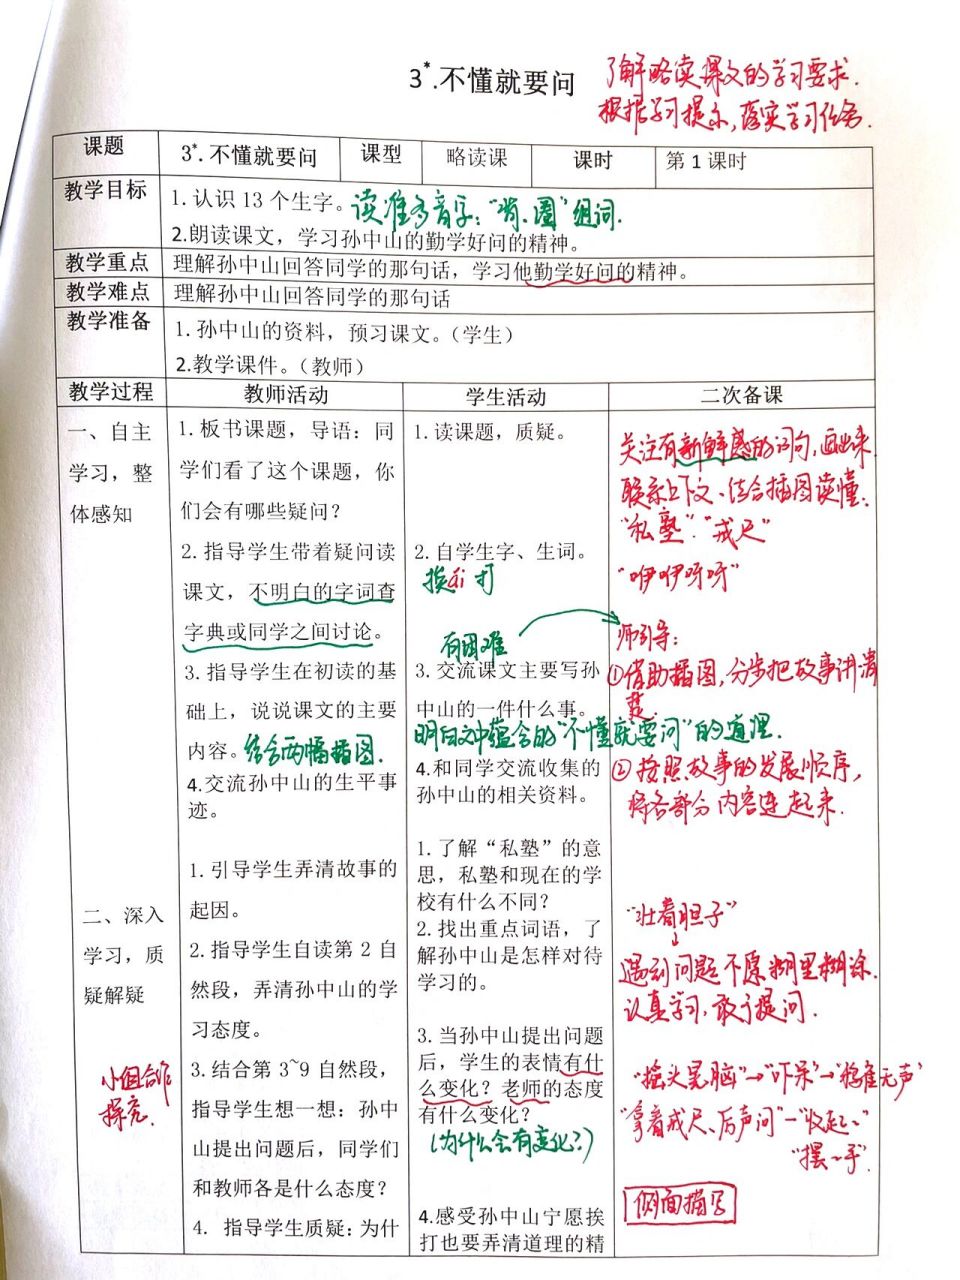 3*.不懂就要问
了解略读课文的学习要求.
根据学习提示,落实学习任务.
课题 3*.不懂就要问 课型 略读课 课时 第1课时
教学目标
1.认识13个生字。读准多音字:"背、圈"组词.
2.朗读课文，学习孙中山的勤学好问的精神。
教学重点 理解孙中山回答同学的那句话，学习他勤学好问的精神。
教学难点 理解孙中山回答同学的那句话
教学准备
1.孙中山的资料，预习课文。（学生）
2.教学课件。（教师）
教学过程 教师活动 学生活动 二次备课
一、自主
学习，整
体感知
1.板书课题，导语：同
学们看了这个课题，你
们会有哪些疑问？
2.指导学生带着疑问读
课文，不明白的字词查
字典或同学之间讨论。
3.指导学生在初读的基
础上，说说课文的主要
内容。结合两幅插图.
4.交流孙中山的生平事
迹。
1.读课题，质疑。
2.自学生字、生词。
挨ái打
有困难
3.交流课文主要写孙
中山的一件什么事。
明白文中蕴含的"不懂就要问"的道理.
4.和同学交流收集的
孙中山的相关资料。
关注有新鲜感的词句,画出来
联系上下文、结合插图读懂.
"私塾""戒尺"
"咿咿呀呀"
师引导:
①借助插图,分步把故事讲清
楚.
②按照故事的发展顺序,
将各部分内容连起来.
二、深入
学习，质
疑解疑
小组合作
探究.
1.引导学生弄清故事的
起因。
2.指导学生自读第2自
然段，弄清孙中山的学
习态度。
3.结合第3~9自然段，
指导学生想一想：孙中
山提出问题后，同学们
和教师各是什么态度？
4. 指导学生质疑：为什
1.了解“私塾”的意
思，私塾和现在的学
校有什么不同？
2.找出重点词语，了
解孙中山是怎样对待
学习的。
3.当孙中山提出问题
后，学生的表情有什
么变化？老师的态度
有什么变化？
(为什么会有变化?)
4.感受孙中山宁愿挨
打也要弄清道理的精
"壮着胆子"
↓
遇到问题不愿糊里糊涂.
认真学习,敢于提问.
"摇头晃脑"→"吓呆"→"鸦雀无声"
"拿着戒尺、厉声问"—"收起"、
"摆一手".
侧面描写